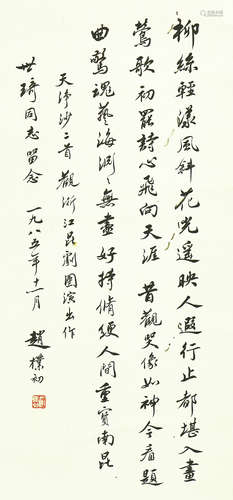 柳絲輕漾風斜花光遥映人遐行止都堪入畫
鶯歌初罷詩心飛向天涯 昔觀哭像如神今看題
曲驚魂藝海淵〻無盡好持情 人间重寶南昆
天淨沙二首 觀浙江昆劇團演出作
世琦同志留念 一九八五年十一月 趙樸初